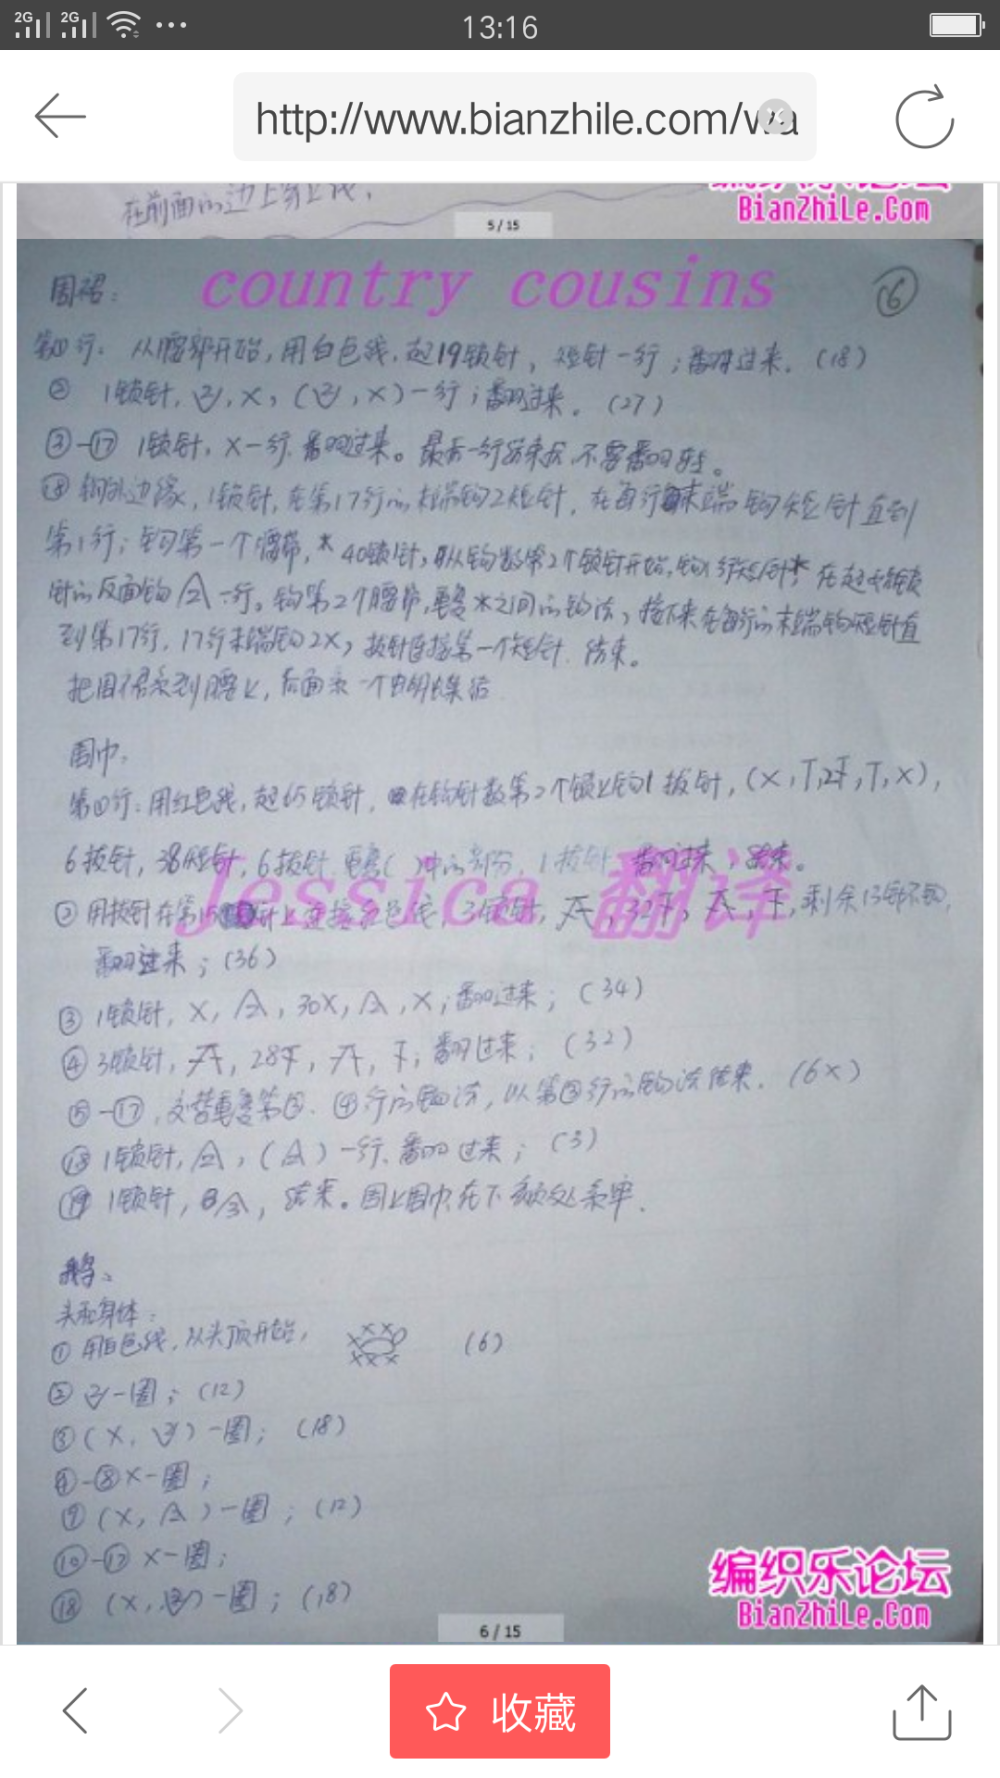 2G 2G 13:16
http://www.bianzhile.com/wa
在前面的边上穿上线,
编织乐论坛
BianZhiLe.Com
5/15
围裙:
country cousins
⑥
第①行: 从腰部开始,用白色线,起19锁针,短针一行;翻过来.(18)
② 1锁针,X,(,X)一行;翻过来.(27)
③-⑰ 1锁针,X一行.翻过来。最后一行结束后,不要翻转。
⑱ 钩外边缘,1锁针,在第17行的末端钩2短针,在每行末端钩短针直到
第1行;钩第一个腰带,*40锁针,从钩数第2个锁针开始,钩1行短针*,在起始锁
针的反面钩一行。钩第2个腰带,重复*之间的钩法,接下来在每行的末端钩短针直
到第17行,17行末端钩2X,拔针连接第一个短针.结束。
把围裙系到腰上,后面系一个蝴蝶结
围巾.
第①行:用红色线,起65锁针,在钩针数第2个锁上钩1拔针,(X,T,2,T,X),
6拔针,38短针,6拔针,重复( )中的部分,1拔针.翻过来,结束。
Jessica 翻译
② 用拔针在第15针上连接红色线,3锁针,,32,,,剩余13针不钩,
翻过来;(36)
③ 1锁针,X,,30X,,X;翻过来;(34)
④ 3锁针,,28,,;翻过来;(32)
⑤-⑰,交替重复第③.④行的钩法,以第③行的钩法结束.(6X)
⑱ 1锁针,,()一行.翻过来;(3)
⑲ 1锁针,,结束。围上围巾,在下系牢.
鹅、
头和身体:
① 用白色线,从头顶开始, (6)
② 一圈;(12)
③(X,)一圈;(18)
④-⑧X一圈;
⑨(X,)一圈;(12)
⑩-⑰ X一圈;
⑱(X,)一圈;(18)
编织乐论坛
BianZhiLe.Com
6/15
收藏